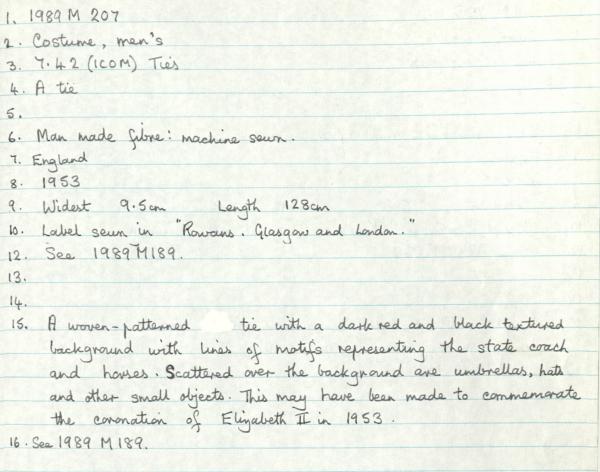 1. 1989 M 207
2. Costume, men's
3. 7.42 (ICOM) Ties
4. A tie
5.
6. Man made fibre: machine sewn.
7. England
8. 1953
9. Widest 9.5cm Length 128cm
10. Label sewn in "Rowans. Glasgow and London."
12. See 1989 M189.
13.
14.
15. A woven-patterned tie with a dark red and black textured
background with lines of motifs representing the state coach
and horses. Scattered over the background are umbrellas, hats
and other small objects. This may have been made to commemorate
the coronation of Elizabeth II in 1953.
16. See 1989 M 189.